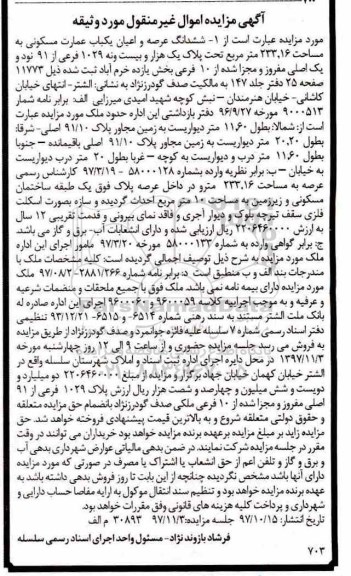 آگهی مزایده اموال غیر منقول مورد وثیقه
مورد مزایده عبارت است از ۱- ششدانگ عرصه و اعیان یکباب عمارت مسکونی به
مساحت ۲۳۳،۱۶ متر مربع تحت پلاک یک هزار و بیست و نه ۱۰۲۹ فرعی از ۹۱ نود و
یک اصلی مفروز و مجزا شده از ۱۰ فرعی بخش یازده خرم آباد ثبت شده ذیل ۱۱۷۷۳
صفحه ۲۵ دفتر جلد ۱۴۷ به مالکیت صدف گودرزنژاد به نشانی: الشتر- انتهای خیابان
کاشانی- خیابان هنرمندان – نبش کوچه شهید امیدی میرزایی الف: برابر نامه شمار
۹۰۰۰۵۱۳ مورخه ۹۶/۹/۲۷ دفتر بازداشتی این اداره حدود ملک مورد مزایده عبارت
است از: شمالا: بطول ۱۱،۶۰ متر دیواریست به زمین مجاور پلاک ۹۱/۱۰ اصلی- شرقا:
بطول ۲۰،۲۰ متر دیواریست به زمین مجاور پلاک ۹۱/۱۰ اصلی باقیمانده – جنوبا
بطول ۱۱،۶۰ متر درب و دیواریست به کوچه – غربا بطول ۲۰ متر درب دیواریست
به خیابان – ب: برابر نظریه وارده بشماره ۵۸۰۰۰۱۲۸ - ۹۷/۳/۱۹ کارشناس رسمی
عرصه به مساحت ۲۳۳،۱۶ مترو در داخل عرصه پلاک فوق یک طبقه ساختمان
مسکونی و زیرزمین به مساحت ۱۰۰ متر مربع احداث گردیده و سازه بصورت اسکلت
فلزی سقف تیرچه بلوک و دیوار آجری و فاقد نمای بیرونی و قدمت تقریبی ۱۲ سال
به ارزش ۲۲۰۶۴۶۰۰۰۰ ریال ارزیابی شده و دارای انشعابات آب- برق و گاز می باشد.
ج: برابر گواهی وارده به شماره ۵۸۰۰۰۱۳۳ مورخه ۹۷/۳/۲۰ مامور اجرای این اداره
ملک مورد مزایده به شرح ذیل توصیف اجمالی گردیده است: کلیه مشخصات ملک با
مندرجات بند الف و ب منطبق است د: برابر نامه شماره ۲۸۸۱/۲۶۶- ۹۷/۰۸/۲ ملک
مورد مزایده دارای بیمه نامه نمی باشد. ملک فوق با جمیع ملحقات و منضمات شرعیه
و عرفیه و به موجب اجراییه کلاسه ۹۶۰۰۰۵۹ و ۹۶۰۰۰۶۰ اجرای این اداره صادره له
بانک ملت الشتر مستند به سند رهنی شماره ۶۵۱۴- و ۶۵۱۵- ۹۳/۱۲/۲۱ تنظیمی
دفتر اسناد رسمی شماره ۷ سلسله علیه فائزه جوانمرد و صدف گودرزنژاد از طریق مزایده
به فروش می رسد جلسه مزایده حضوری و از ساعت ۹ الی ۱۲ روز چهارشنبه مورخه
۱۳۹۷/۱۱/۳ در محل دایره اجرای اداره ثبت اسناد و املاک شهرستان سلسله واقع در
الشتر خیابان کهمان خیابان جهاد برگزار و مزایده از مبلغ ۲۲۰۶۴۶۰۰۰۰ دو میلیارد و
دویست و شش میلیون و چهارصد و شصت هزار ریال ارزش پلاک ۱۰۲۹ فرعی از ۹۱
اصلی مفروز و مجزا شده از ۱۰ فرعی ملکی صدف گودرزنژاد بانضمام حق مزایده متعلقه
و حقوق دولتی متعلقه شروع و به بالاترین قیمت پیشنهادی فروخته خواهد شد. حق
مزایده زاید بر مبلغ مزایده برعهده برنده مزایده خواهد بود خریداران می توانند در وقت
مقرر در جلسه مزایده شرکت نمایند. در ضمن بدهی مالیاتی عوارض شهرداری بدهی آب
و برق و گاز و تلفن اعم از حق انشعاب یا اشتراک یا مصرف در صورتی که مورد مزایده
دارای آنها باشد مشخص نگردیده چنانچه از این بابت تا روز فروش بدهی داشته باشد به
عهده برنده مزایده خواهد بود و تنظیم سند انتقال موکول به ارایه مفاصا حساب دارایی و
شهرداری و پرداخت کلیه هزینه های قانونی وفق مقررات خواهد بود.
تاریخ انتشار: ۹۷/۱۰/۱۵ جلسه مزایده:۹۷/۱۱/۳ ۳۰۸۹۳ م الف
فرشاد بازوند نژاد- مسئول واحد اجرای اسناد رسمی سلسله
۷۰۳